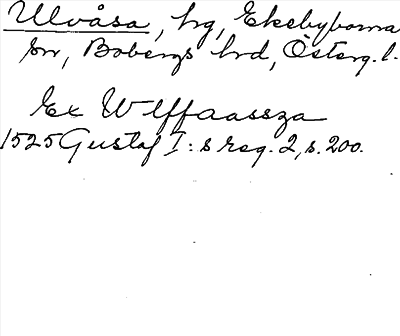 Ulvåsa, hrg, Ekebyborna
sn, Bobergs hrd, Österg.l.
Ex Wlffaassza
1525 Gustaf I:s reg. 2, s. 200.